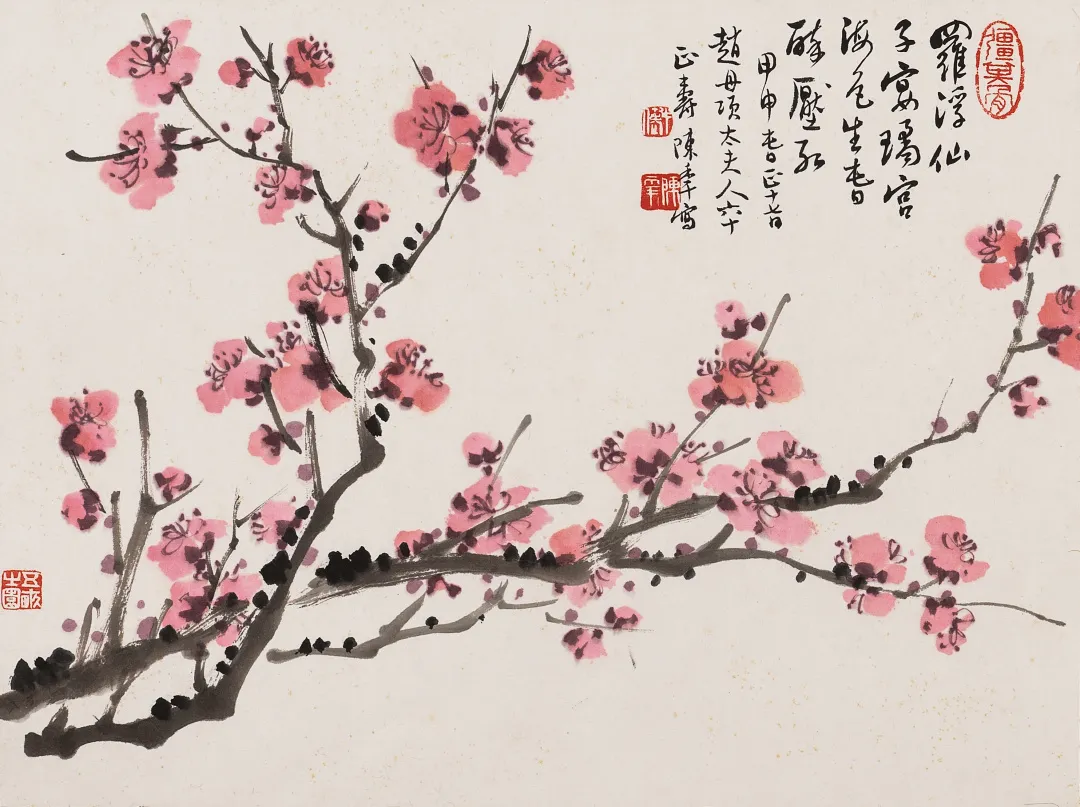 彊其骨
羅浮仙
子宴璚宮
海色生春
醉靨紅
甲申春正十
趙母項太夫人六十
正壽陳寫